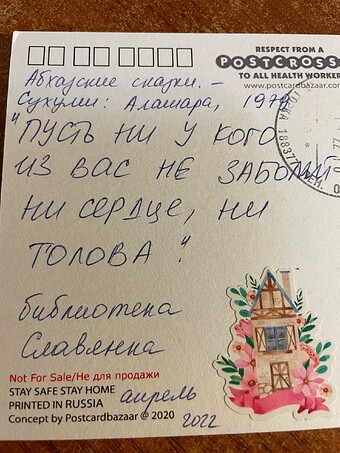 RESPECT FROM A
POSTCROSS
TO ALL HEALTH WORKER
www.postcardbazaar.com
Абхазские сказки. –
Сухуми: Алашара, 197
"ПУСТЬ НИ У КОГО
ИЗ ВАС НЕ ЗАБОЛИТ
НИ СЕРДЦЕ, НИ
ГОЛОВА".
библиотека
Славянка
Not For Sale/Не для продажи
STAY SAFE STAY HOME
PRINTED IN RUSSIA
апрель
Concept by Postcardbazaar @ 2020
2022